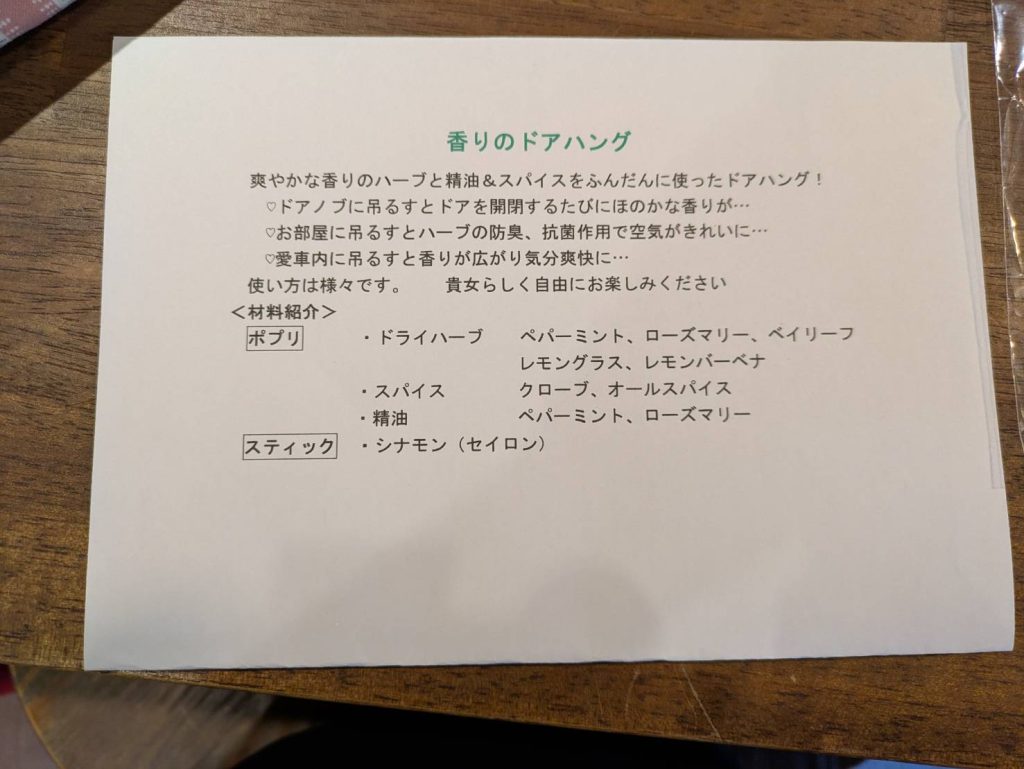 香りのドアハング
爽やかな香りのハーブと精油＆スパイスをふんだんに使ったドアハング！
♡ドアノブに吊るすとドアを開閉するたびにほのかな香りが…
♡お部屋に吊るすとハーブの防臭、抗菌作用で空気がきれいに…
♡愛車内に吊るすと香りが広がり気分爽快に…
使い方は様々です。　　貴女らしく自由にお楽しみください
＜材料紹介＞
ポプリ　・ドライハーブ　ペパーミント、ローズマリー、ベイリーフ
レモングラス、レモンバーベナ
・スパイス　クローブ、オールスパイス
・精油　ペパーミント、ローズマリー
スティック　・シナモン（セイロン）